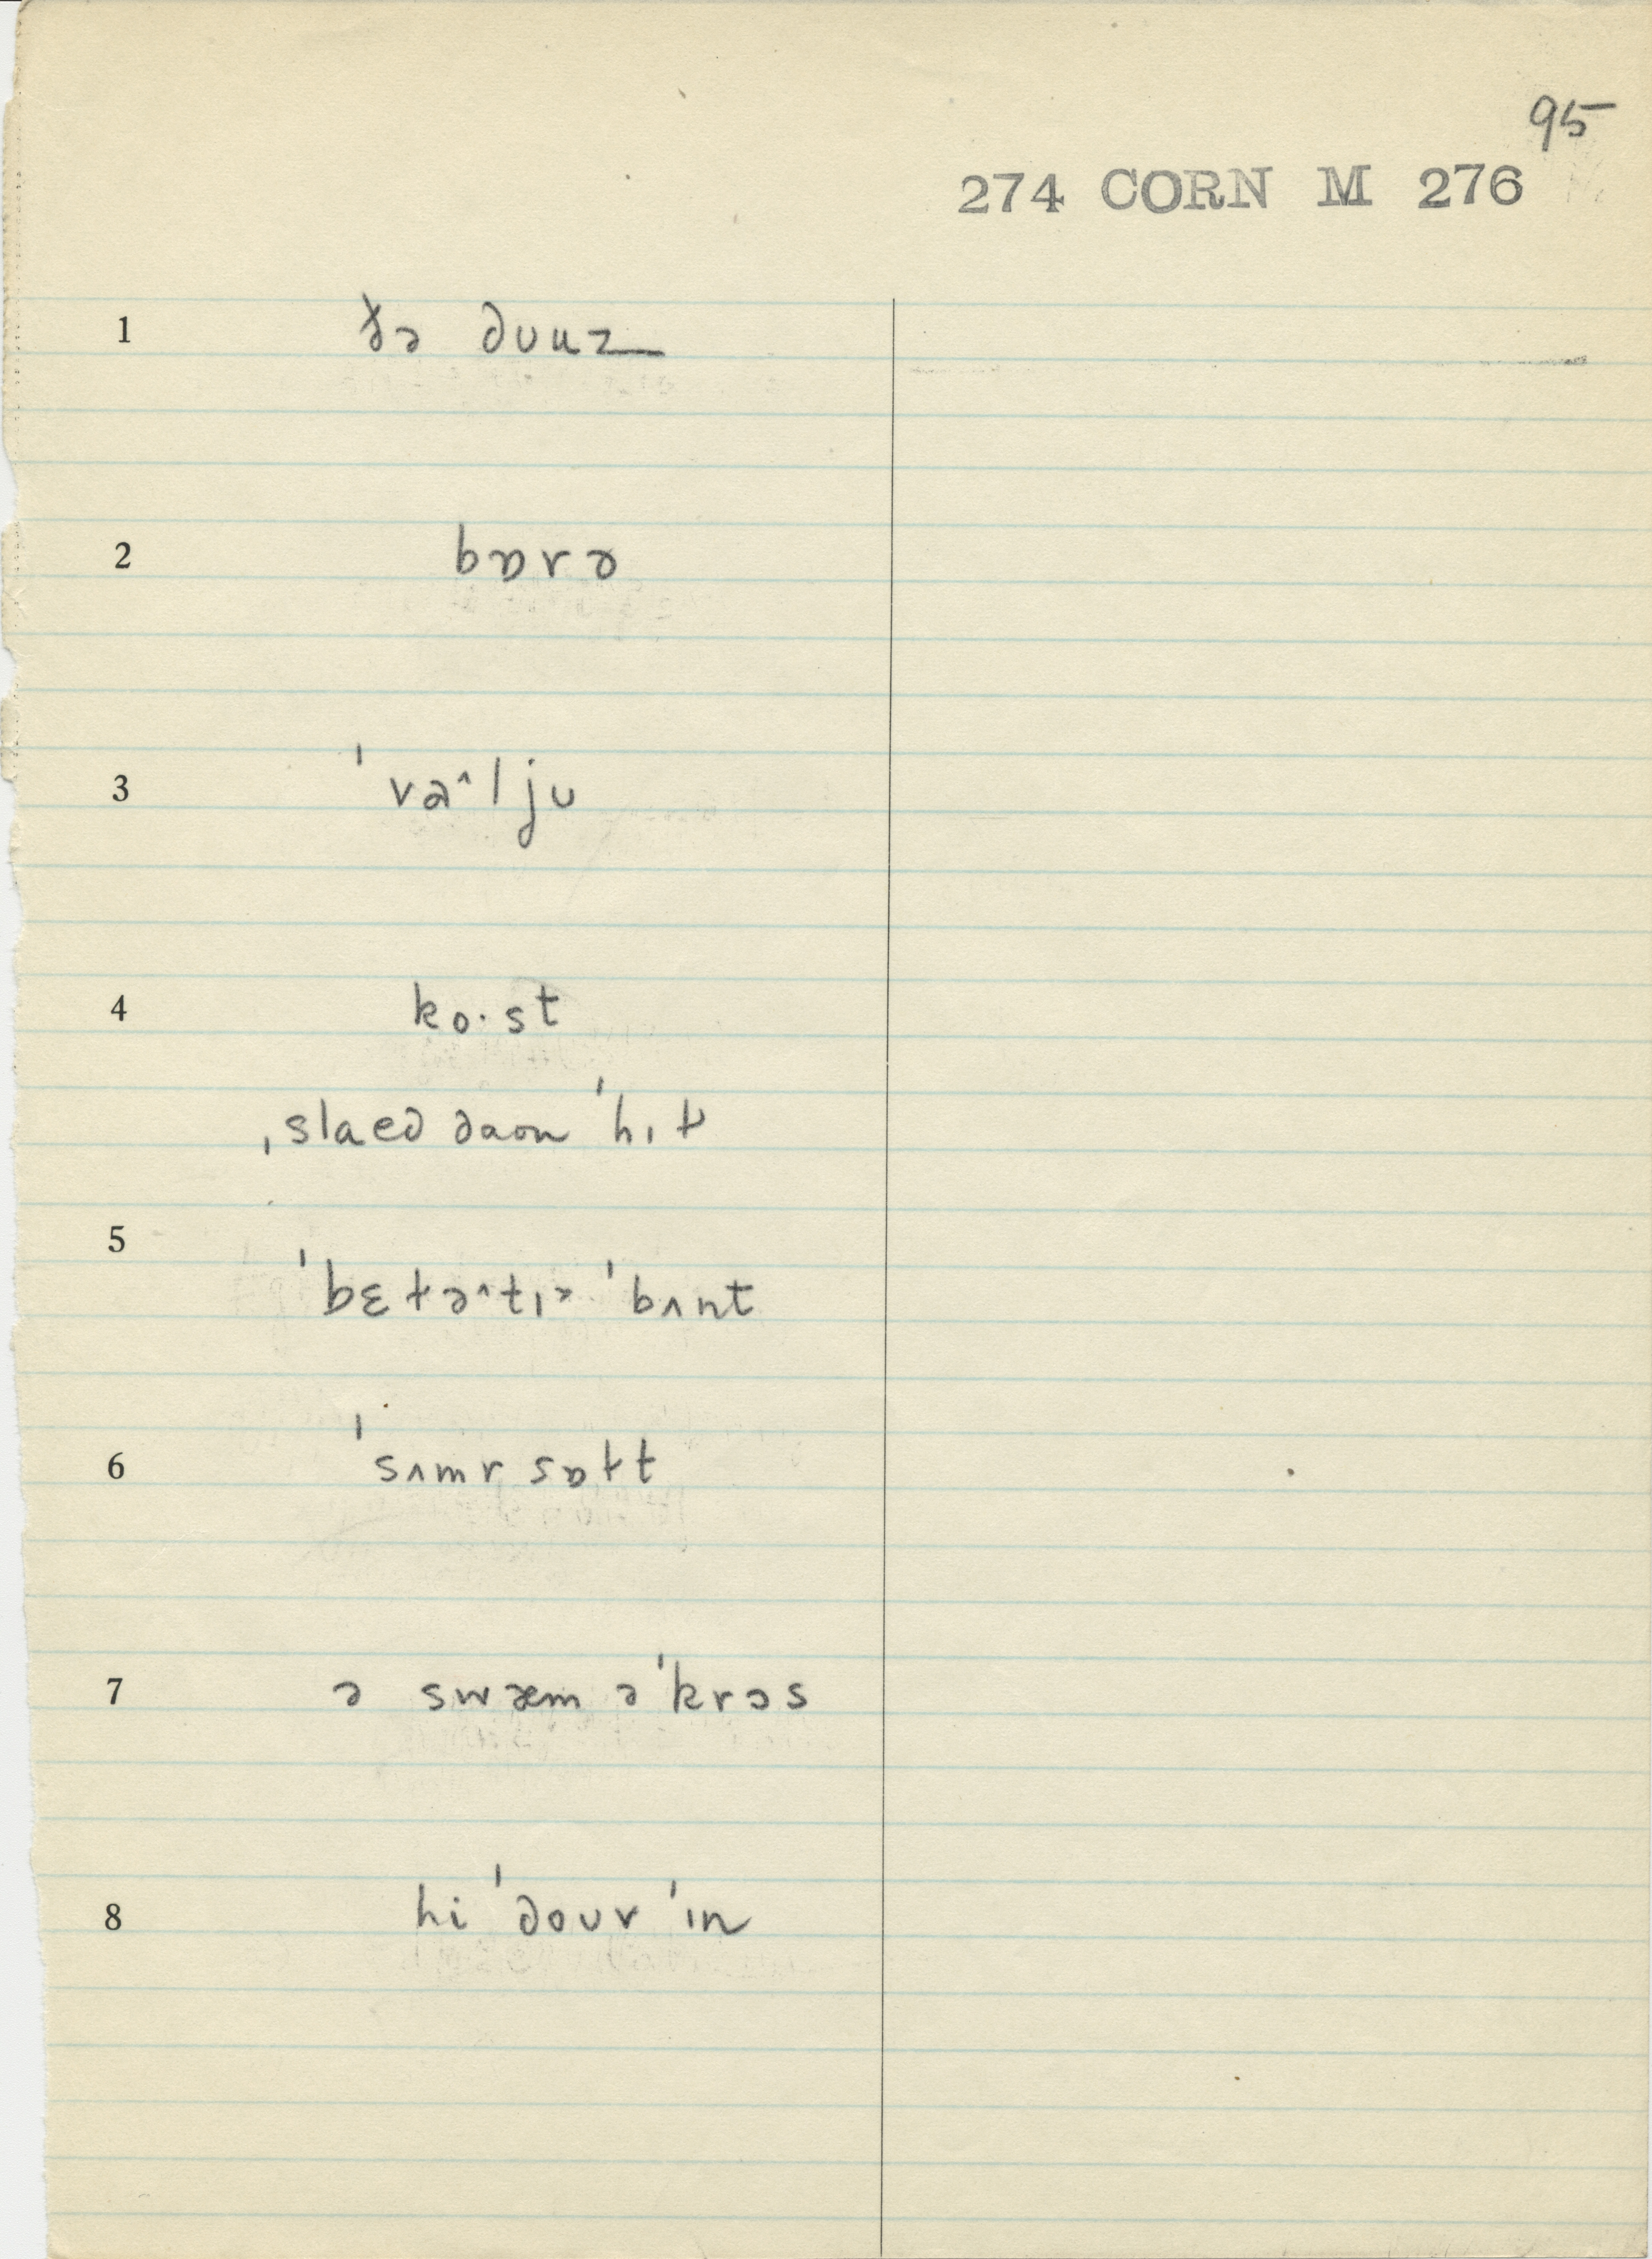 95
274 CORN M 276
1 ðə duuz
2 bɒrə
3 ˈvaˆljʊ
4 ko·st
ˌslaed daon ˈhɪɫ
5 ˈbɛtəˆtɪᵊ ˈbʌnt
6 ˈsʌmr sɒɫt
7 ə swæm əˈkrɔs
8 hi ˈdoʊv ˈɪn